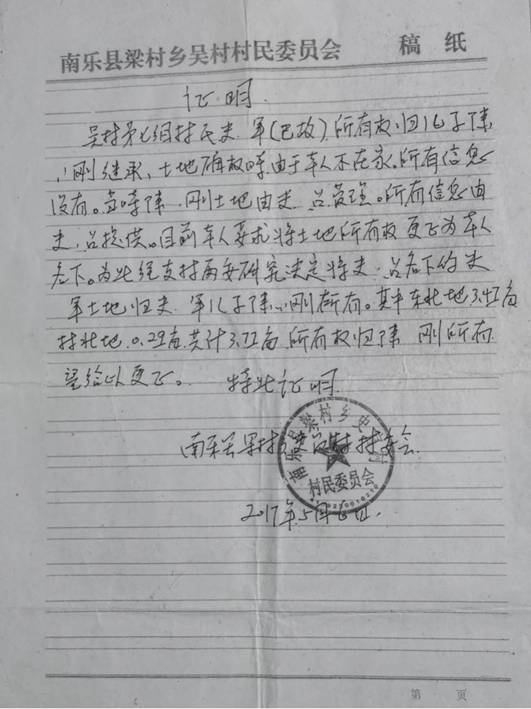 南乐县梁村乡吴村村民委员会 稿纸
证明
吴村第七组村民史 军(已故),所有权归儿子陈
刚继承,土地确权时,由于本人不在家,所有信息
没有。当时陈 刚土地由史 吕管理。所有信息由
史 吕提供。目前本人要求将土地所有权更正为本人
名下。为此经支村两委研究决定将史 吕名下的史
军土地归史 军儿子陈 刚所有。其中东北地3.42亩
村北地0.29亩共计3.72亩,所有权归陈 刚所有
望给以更正。 特此证明
南乐县梁村乡 村村委会
2017年5月6日.
南乐县梁村乡史 村
村民委员会
第 页